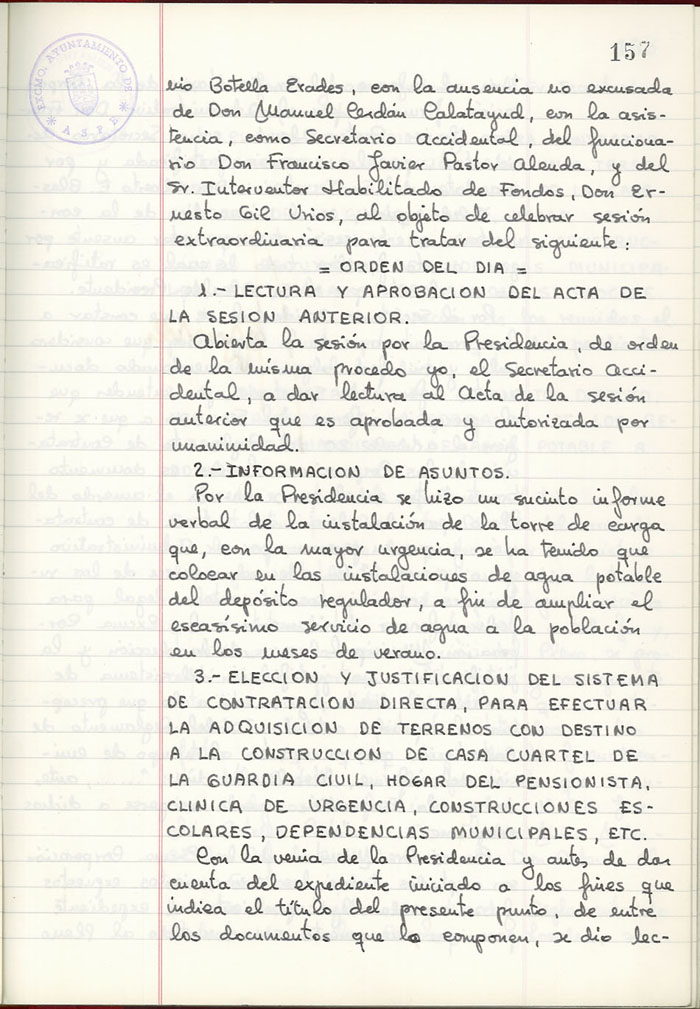 157
EXCMO. AYUNTAMIENTO DE
* A.S.P.E *
nio Botella Erades, con la ausencia no excusada
de Don Manuel Cerdán Calatayud, con la asis-
tencia, como Secretario Accidental, del funciona-
rio Don Francisco Javier Pastor Alenda, y del
Sr. Interventor Habilitado de Fondos, Don Er-
nesto Gil Urios, al objeto de celebrar sesión
extraordinaria para tratar del siguiente:
= ORDEN DEL DIA =
1.- LECTURA Y APROBACION DEL ACTA DE
LA SESION ANTERIOR.
Abierta la sesión por la Presidencia, de orden
de la misma procedo yo, el Secretario Acci-
dental, a dar lectura al Acta de la sesión
anterior que es aprobada y autorizada por
unanimidad.
2.- INFORMACION DE ASUNTOS.
Por la Presidencia se hizo un sucinto informe
verbal de la instalación de la torre de carga
que, con la mayor urgencia, se ha tenido que
colocar en las instalaciones de agua potable
del depósito regulador, a fin de ampliar el
escasísimo servicio de agua a la población
en los meses de verano.
3.- ELECCION Y JUSTIFICACION DEL SISTEMA
DE CONTRATACION DIRECTA, PARA EFECTUAR
LA ADQUISICION DE TERRENOS CON DESTINO
A LA CONSTRUCCION DE CASA CUARTEL DE
LA GUARDIA CIVIL, HOGAR DEL PENSIONISTA,
CLINICA DE URGENCIA, CONSTRUCCIONES ES-
COLARES, DEPENDENCIAS MUNICIPALES, ETC.
Con la venia de la Presidencia y antes de dar
cuenta del expediente iniciado a los fines que
indica el título del presente punto, de entre
los documentos que lo componen, se dio lec-